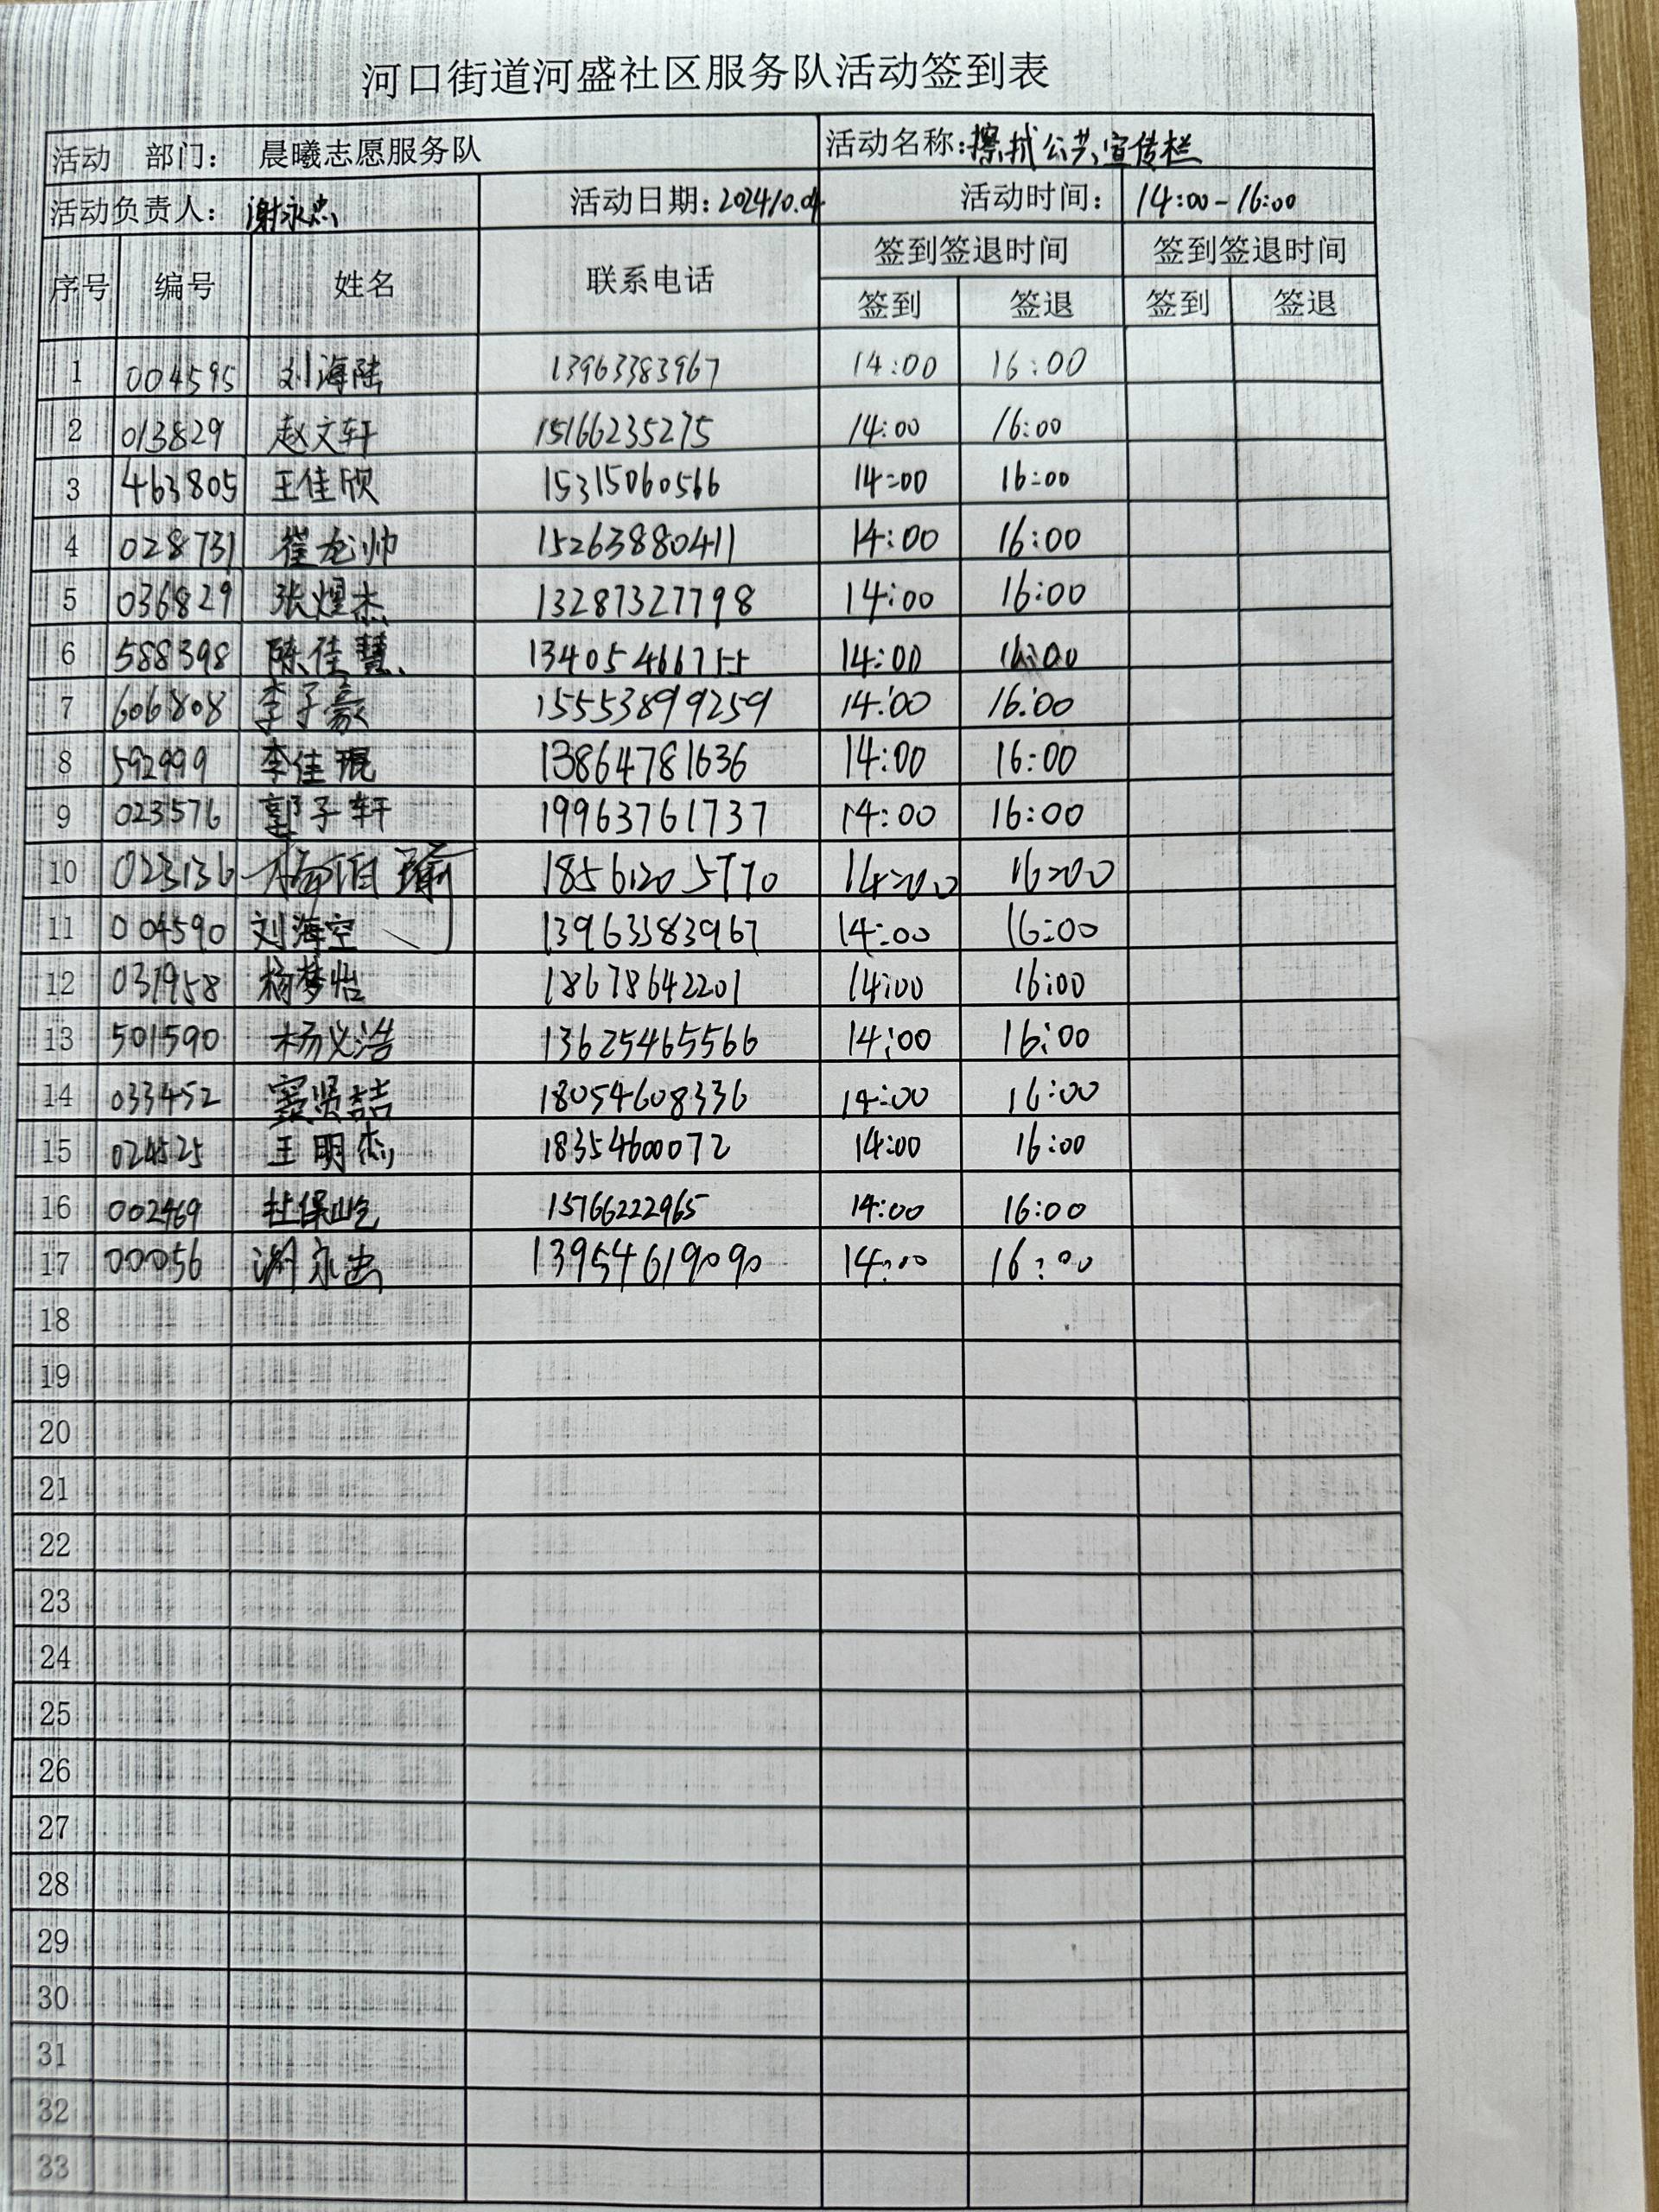 河口街道河盛社区服务队活动签到表
活动 部门： 晨曦志愿服务队 活动名称:擦拭公共宣传栏
活动负责人： 谢永忠 活动日期:202410.04 活动时间： 14:00-16:00
序号 编号 姓名 联系电话 签到签退时间 签到签退时间
签到 签退 签到 签退
1 004595 刘海陆 13963383967 14:00 16:00
2 013829 赵文轩 15166235275 14:00 16:00
3 463805 王佳欣 15315060566 14:00 16:00
4 028731 崔龙帅 15263880411 14:00 16:00
5 036829 张煜杰 13287327798 14:00 16:00
6 588398 陈佳慧 13405466755 14:00 16:00
7 606808 李子豪 15553899259 14:00 16:00
8 592999 李佳琨 13864781636 14:00 16:00
9 023576 郭子轩 19963761737 14:00 16:00
10 023136 18561205770 14:00 16:00
11 004590 刘海空 13963383967 14:00 16:00
12 031958 杨梦怡 18678642201 14:00 16:00
13 501590 杨义浩 13625465566 14:00 16:00
14 033452 窦贤喆 18054608336 14:00 16:00
15 024525 王明杰 18354600072 14:00 16:00
16 002469 杜保屹 15766222965 14:00 16:00
17 00056 谢永忠 13954619090 14:00 16:00
18
19
20
21
22
23
24
25
26
27
28
29
30
31
32
33